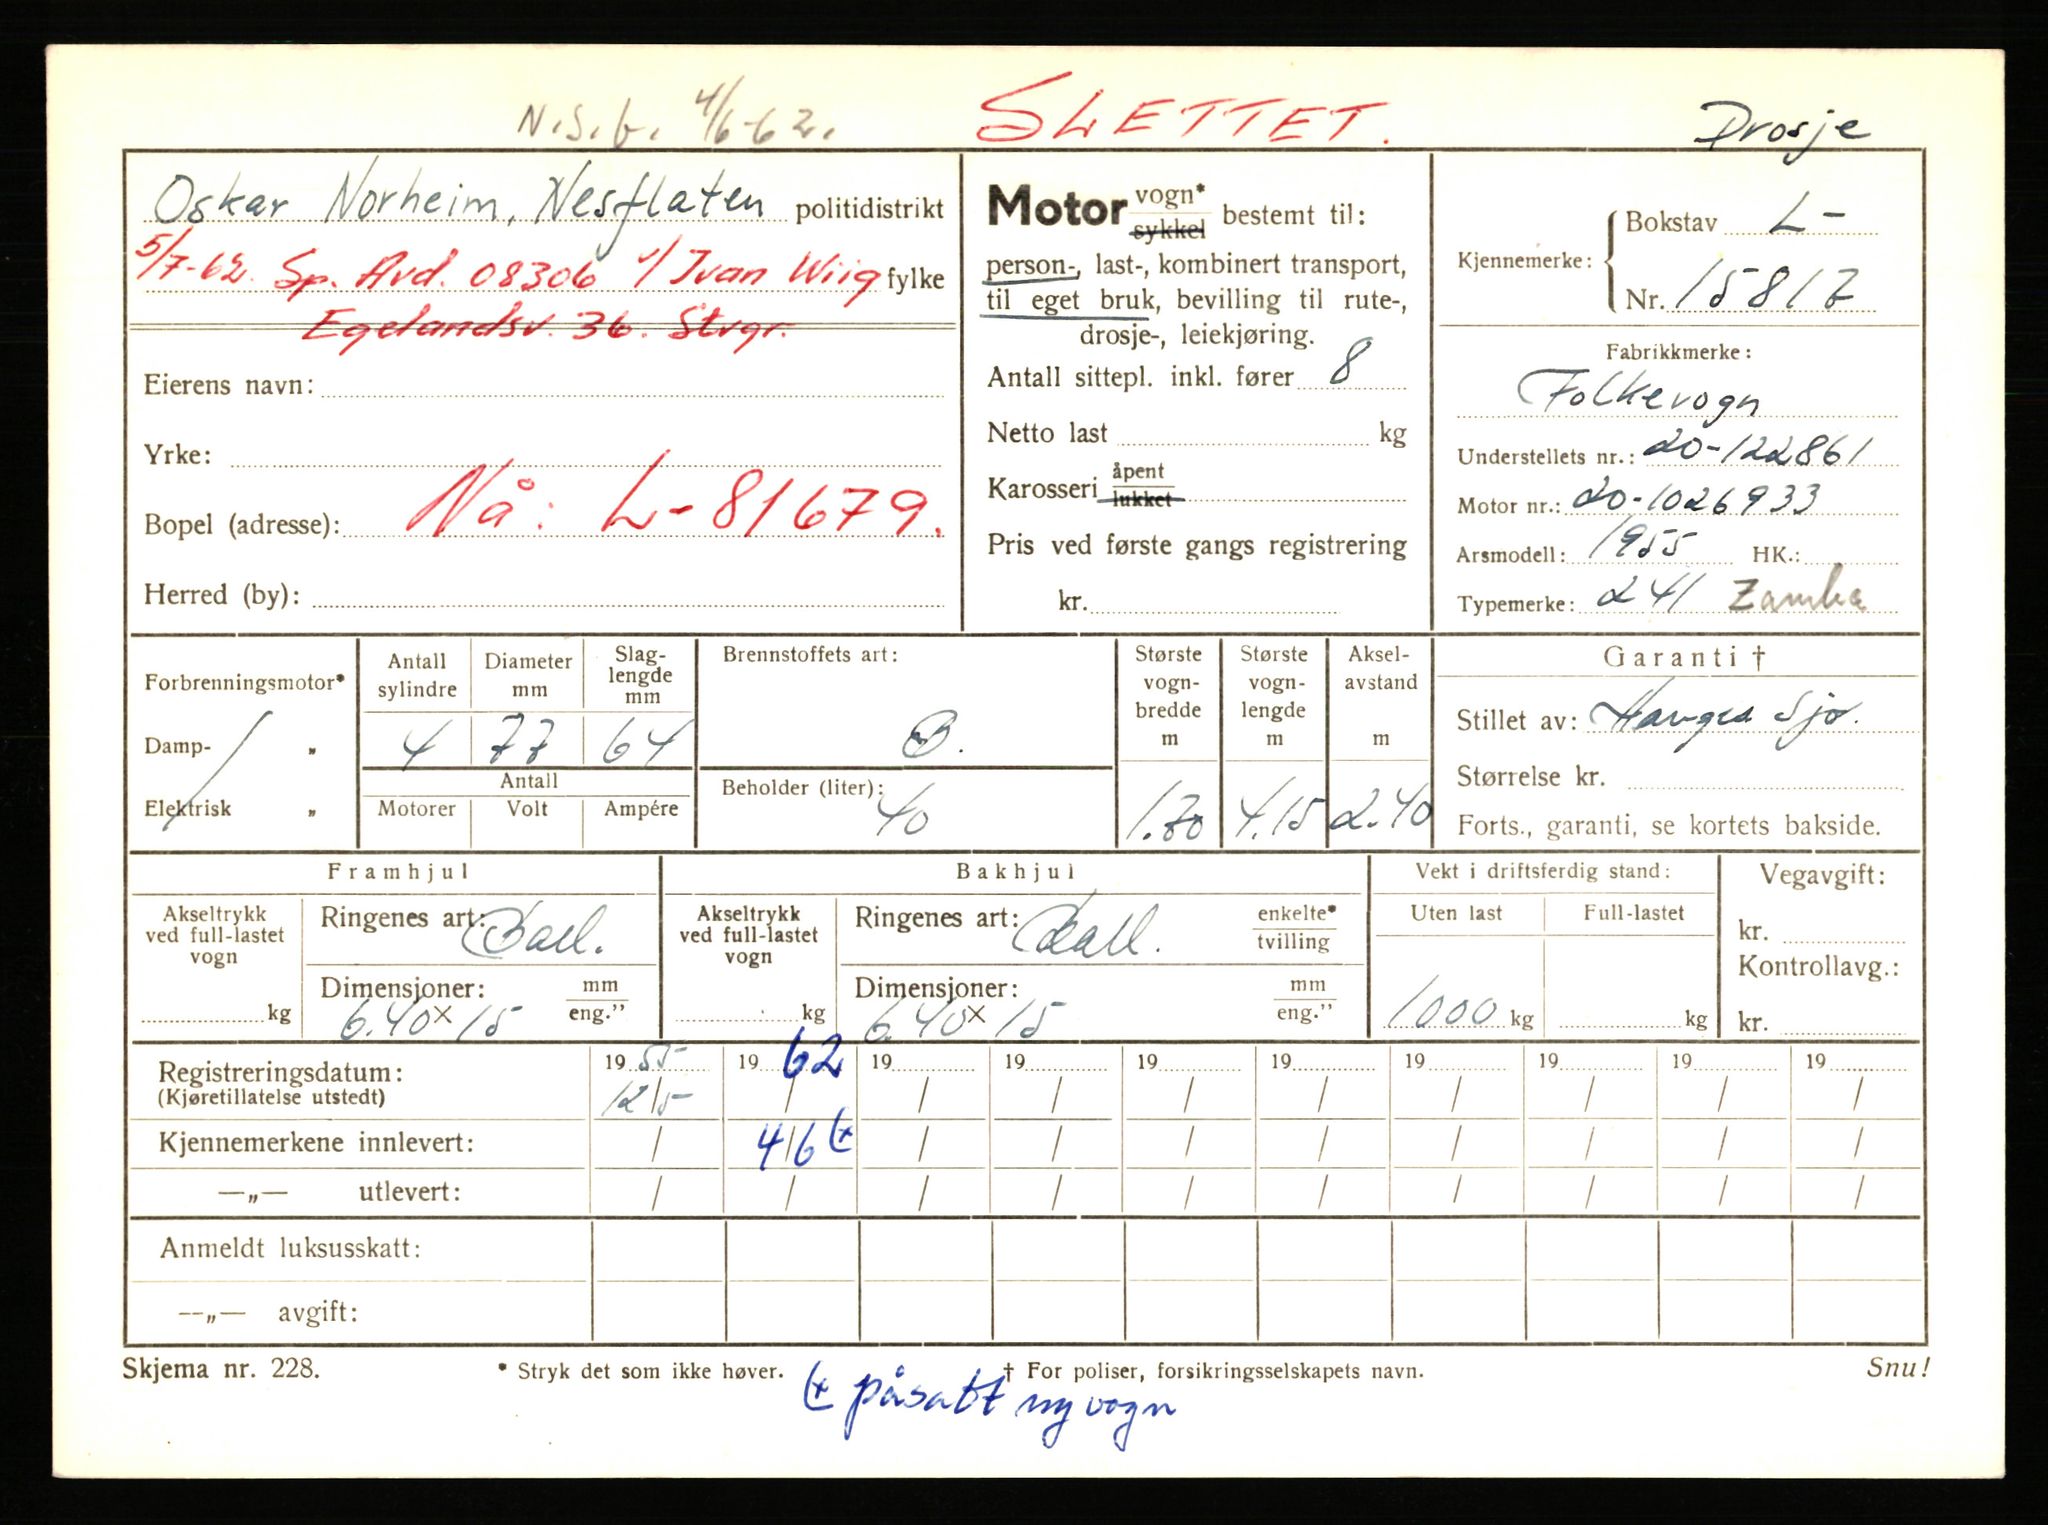 N.S.b. 4/6-62. SLETTET. Drosje
Oskar Norheim, Nesflaten politidistrikt
5/7-62. Sp. Avd. 08306 v/ Ivan Wiig fylke
Egelandsv. 36. Stvgr.
Eierens navn:
Yrke:
Bopel (adresse): Nå: L-81679.
Herred (by):
Motor vogn* sykkel bestemt til:
person-, last-, kombinert transport,
til eget bruk, bevilling til rute-,
drosje-, leiekjøring.
Antall sittepl. inkl. fører 8
Netto last kg
Karosseri åpent lukket
Pris ved første gangs registrering
kr.
Kjennemerke: Bokstav L-
Nr. 15817
Fabrikkmerke:
Folkevogn
Understellets nr.: 20-122861
Motor nr.: 20-1026933
Arsmodell: 1955 HK.:
Typemerke: 241
Forbrenningsmotor*
Damp- „
Elektrisk „
Antall sylindre 4
Diameter mm 77
Slag-lengde mm 64
Antall
Motorer Volt Ampére
Brennstoffets art:
B.
Beholder (liter):
40
Største vogn-bredde m 1.70
Største vogn-lengde m 4.15
Aksel-avstand m 2.40
Garanti †
Stillet av: Haugea Sjø.
Størrelse kr.
Forts., garanti, se kortets bakside.
Framhjul
Akseltrykk ved full-lastet vogn kg
Ringenes art: Ball.
Dimensjoner: mm eng.”
6.40 x 15
Bakhjul
Akseltrykk ved full-lastet vogn kg
Ringenes art: Ball. enkelte* tvilling
Dimensjoner: mm eng.”
6.40 x 15
Vekt i driftsferdig stand:
Uten last Full-lastet
1000 kg kg
Vegavgift:
kr.
Kontrollavg.:
kr.
Registreringsdatum: 19 55 19 62 19 19 19 19 19 19 19 19
(Kjøretillatelse utstedt) 12/5 / / / / / / / / /
Kjennemerkene innlevert: / 4/6 (x / / / / / / / /
—„— utlevert: / / / / / / / / / /
Anmeldt luksusskatt:
—„— avgift:
Skjema nr. 228. * Stryk det som ikke høver. † For poliser, forsikringsselskapets navn. Snu!
(x påsatt ny vogn